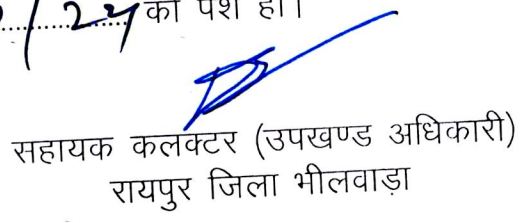 /24 को पेश हो।
सहायक कलक्टर (उपखण्ड अधिकारी)
रायपुर जिला भीलवाड़ा